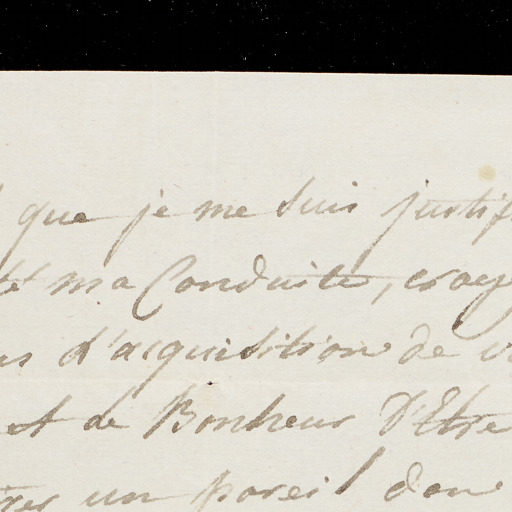 que je me suis justif
ma Conduite, croye
d'acquisition de
et de Bonheur D'Etre
un pareil don